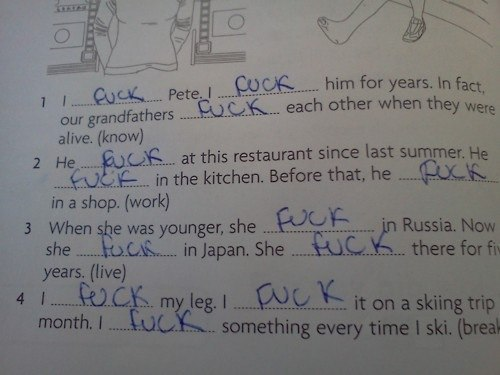 1 I FUCK Pete. I FUCK him for years. In fact,
our grandfathers FUCK each other when they were
alive. (know)
2 He FUCK at this restaurant since last summer. He
FUCK in the kitchen. Before that, he FUCK
in a shop. (work)
3 When she was younger, she FUCK in Russia. Now
she FUCK in Japan. She FUCK there for fiv
years. (live)
4 I FUCK my leg. I FUCK it on a skiing trip
month. I FUCK something every time I ski. (break